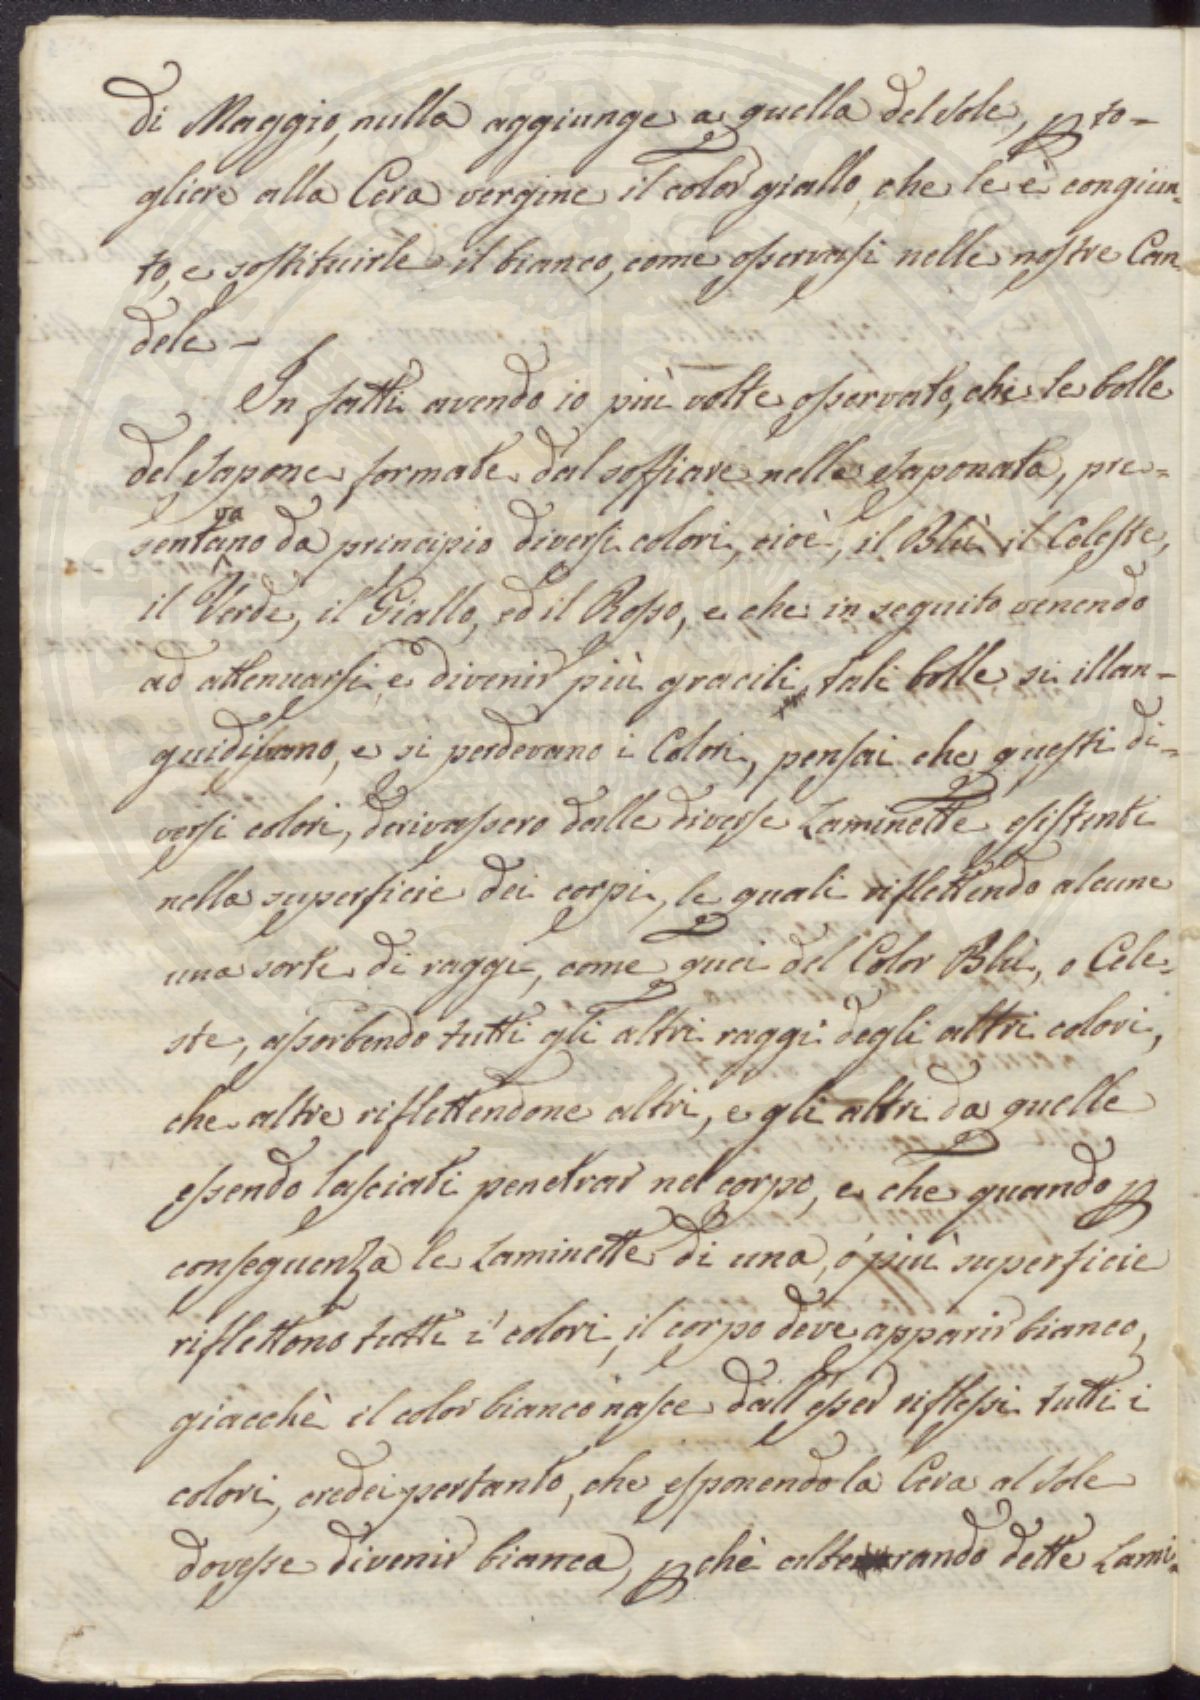 di Maggio, nulla aggiunge a quella del Sole, p to=
gliere alla Cera vergine il color giallo, che le è congiun=
to, e sostituirle il bianco, come osservasi nelle nostre Can
dele –
In fatti avendo io più volte osservato, che le bolle
del Sapone formate dal soffiare nella Saponata, pre=
sentavano da principio diversi colori, cioè, il Blù il Celeste,
il Verde, il Giallo, ed il Rosso, e che in seguito venendo
ad attenuarsi, e divenir più gracili, tali bolle si illan=
guidivano, e si perdevano i Colori, pensai che questi di=
versi colori, derivassero dalle diverse Laminette esistenti
nella superficie dei corpi, le quali riflettendo alcune
una sorte di raggi, come quei del Color Blù, o Cele=
ste, assorbendo tutti gli altri raggi degli altri colori,
che altre riflettendone altri, e gli altri da quelle
essendo lasciati penetrar nel corpo, e che quando p
conseguenza le Laminette di una, o più superficie
riflettono tutti i colori, il corpo deve apparir bianco,
giacchè il color bianco nasce dall'esser riflessi tutti i
colori, credei pertanto, che esponendo la Cera al Sole
dovesse divenir bianca, pchè alterando dette Lami=